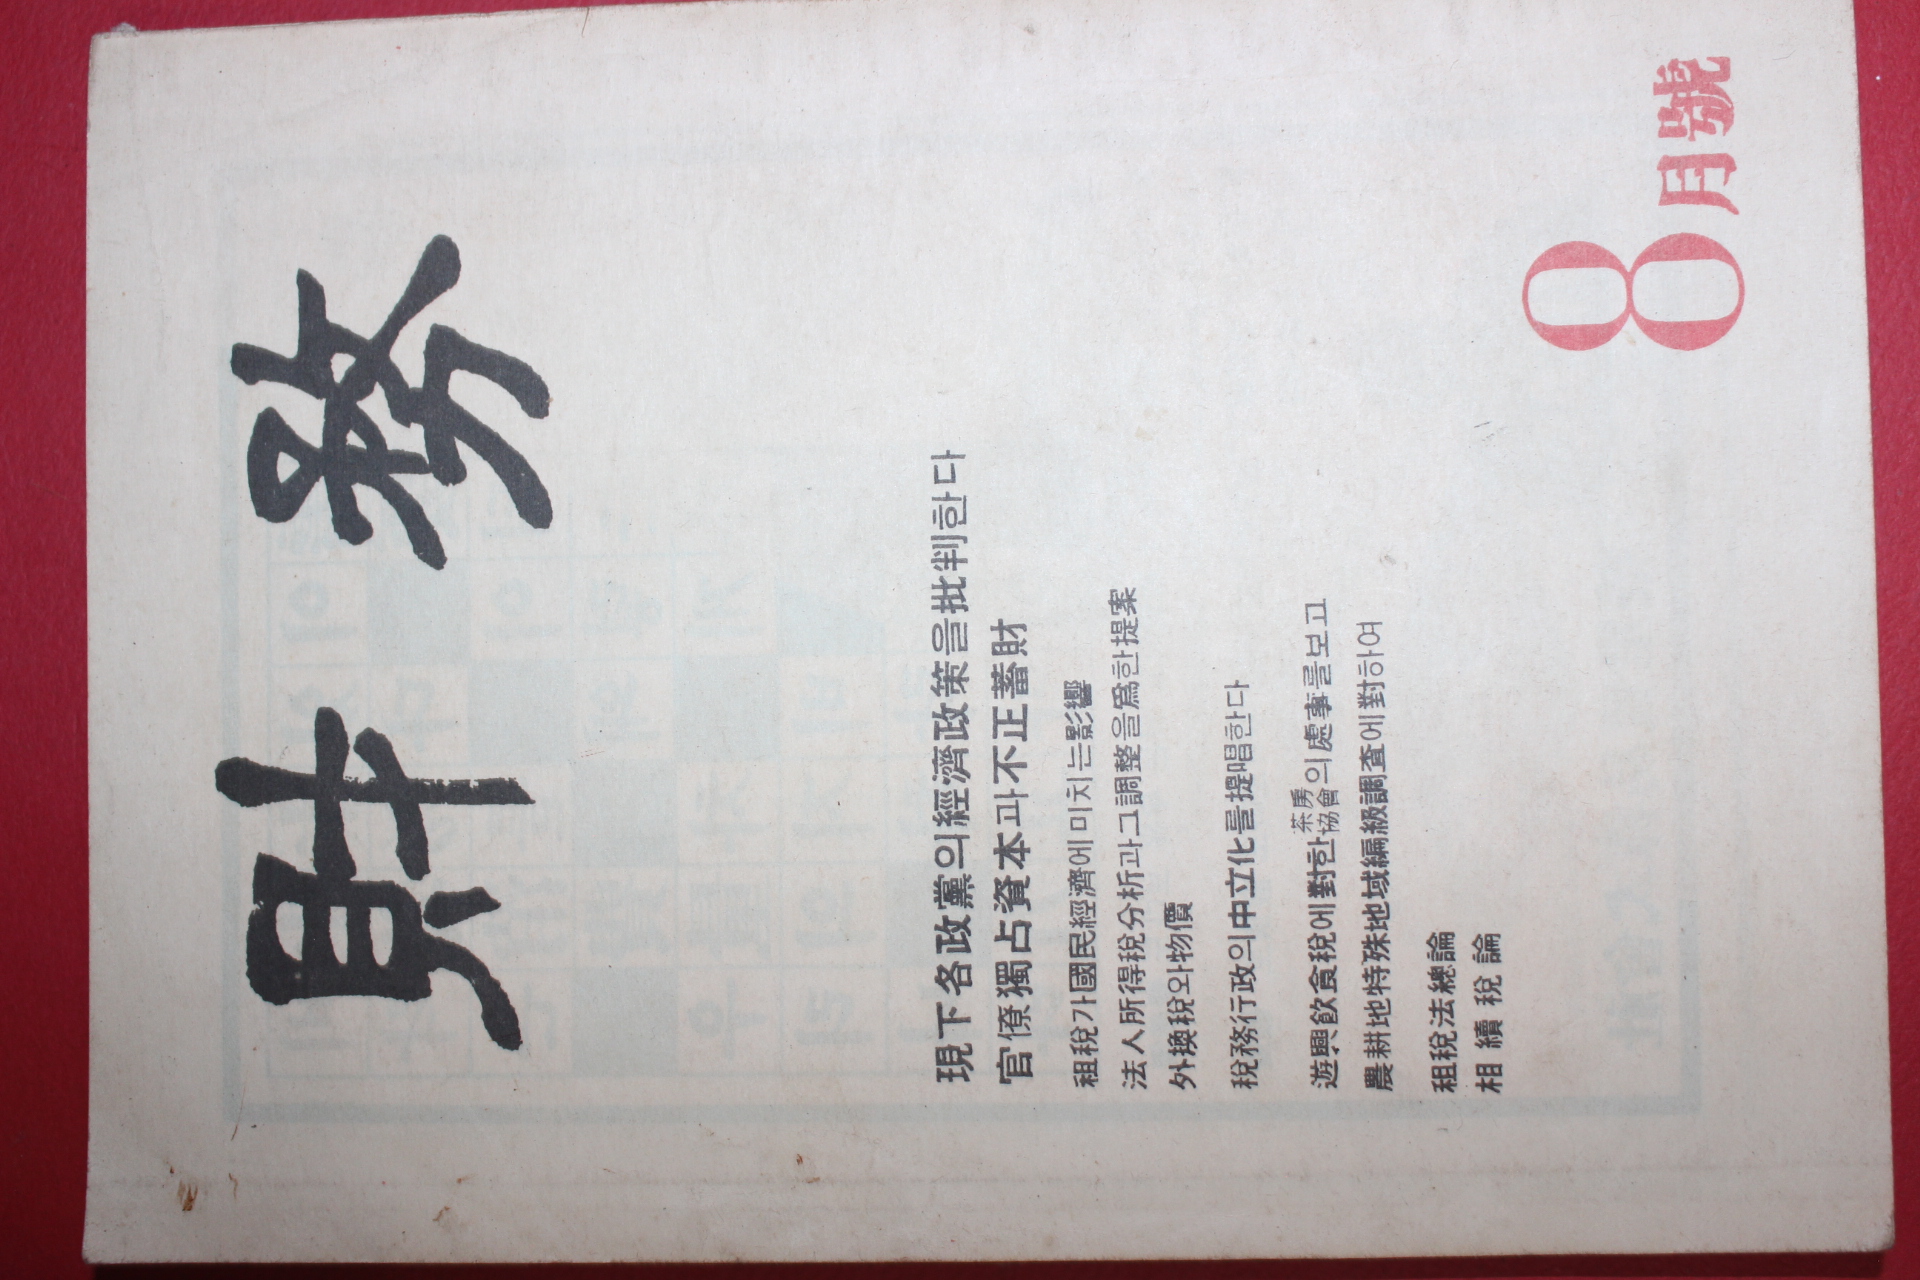 財務
現下各政黨의經濟政策을批判한다
官僚獨占資本과不正蓄財
租稅가國民經濟에미치는影響
法人所得稅分析과그調整을爲한提案
外換稅와物價
稅務行政의中立化를提唱한다
遊興飮食稅에對한茶房協會의處事를보고
農耕地特殊地域編級調査에對하여
租稅法總論
相續稅論
8月號